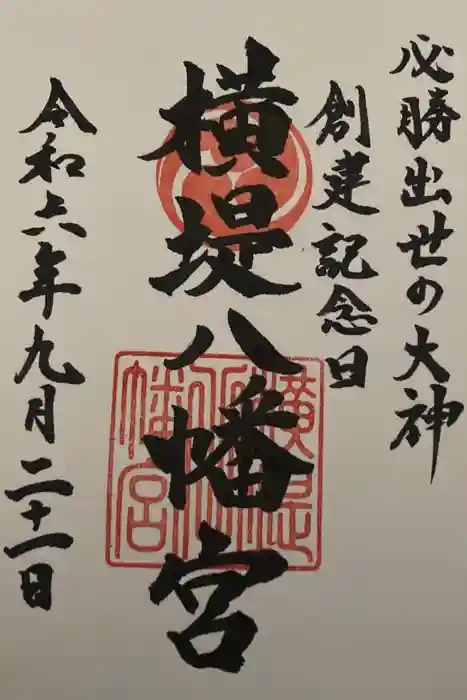 必勝出世の大神
創建記念日
横堤八幡宮
令和六年九月二十一日
横堤八幡宮